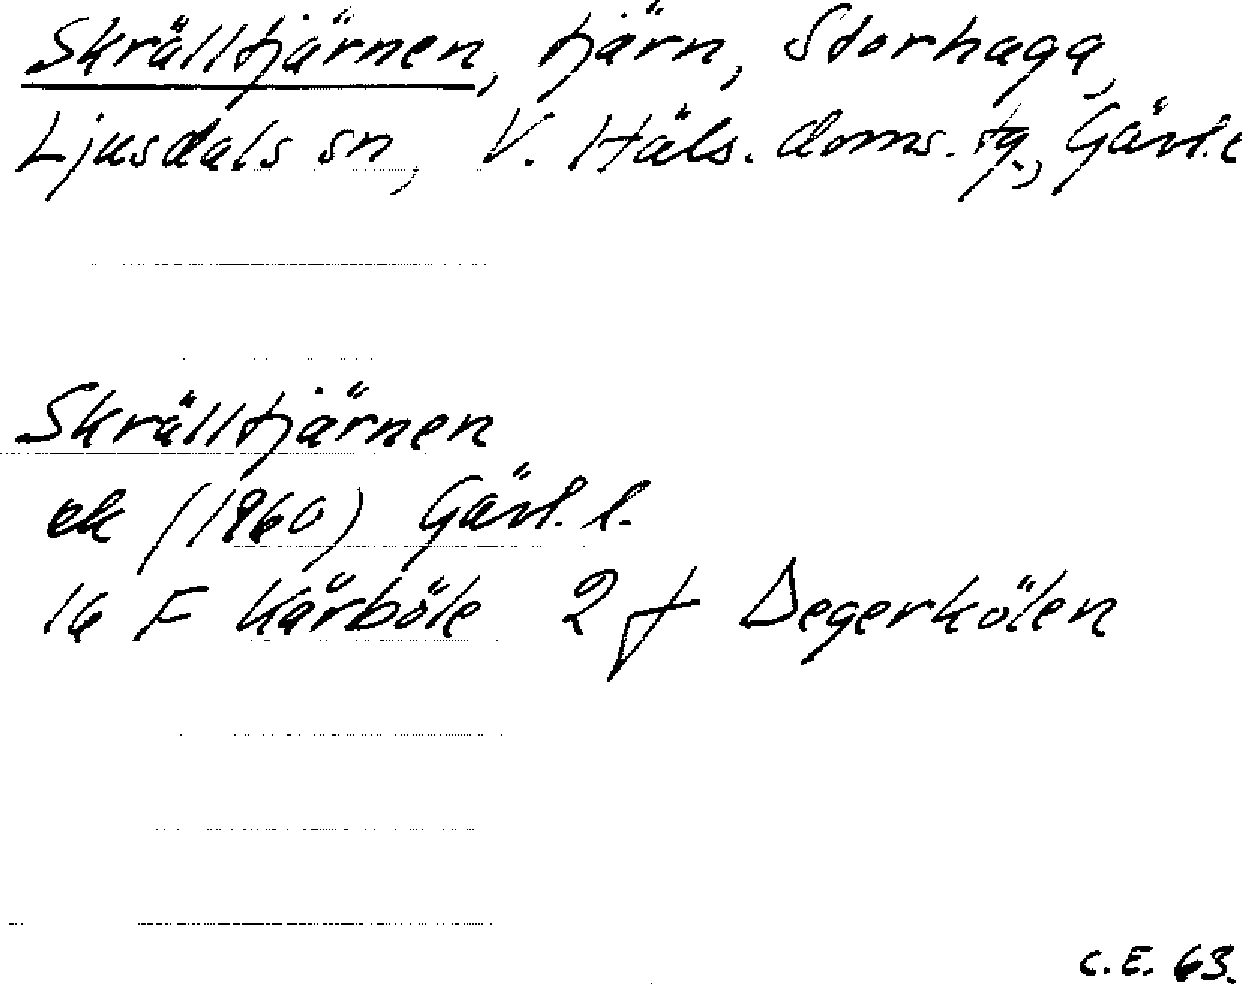 Skrälltjärnen, tjärn, Storhaga,
Ljusdals sn, V. Häls. doms. tg., Gävl. l
Skrälltjärnen
ek (1960) Gävl. l.
16 F Kårböle 2 f Degerkölen
C.E. 63.